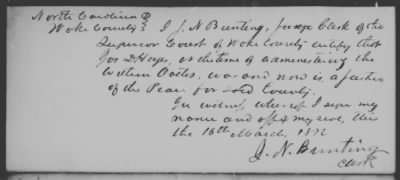 North Carolina }
Wake County } I J. N. Bunting, Judge Clerk of the
Superior Court of Wake County certify that
Jos D Hayes, at the time of administering the
within Oaths, was and now is, a Justice
of the Peace for said County.
In witness whereof I sign my
name and affix my seal, this
the 16th March 1872
J. N. Bunting
Clerk